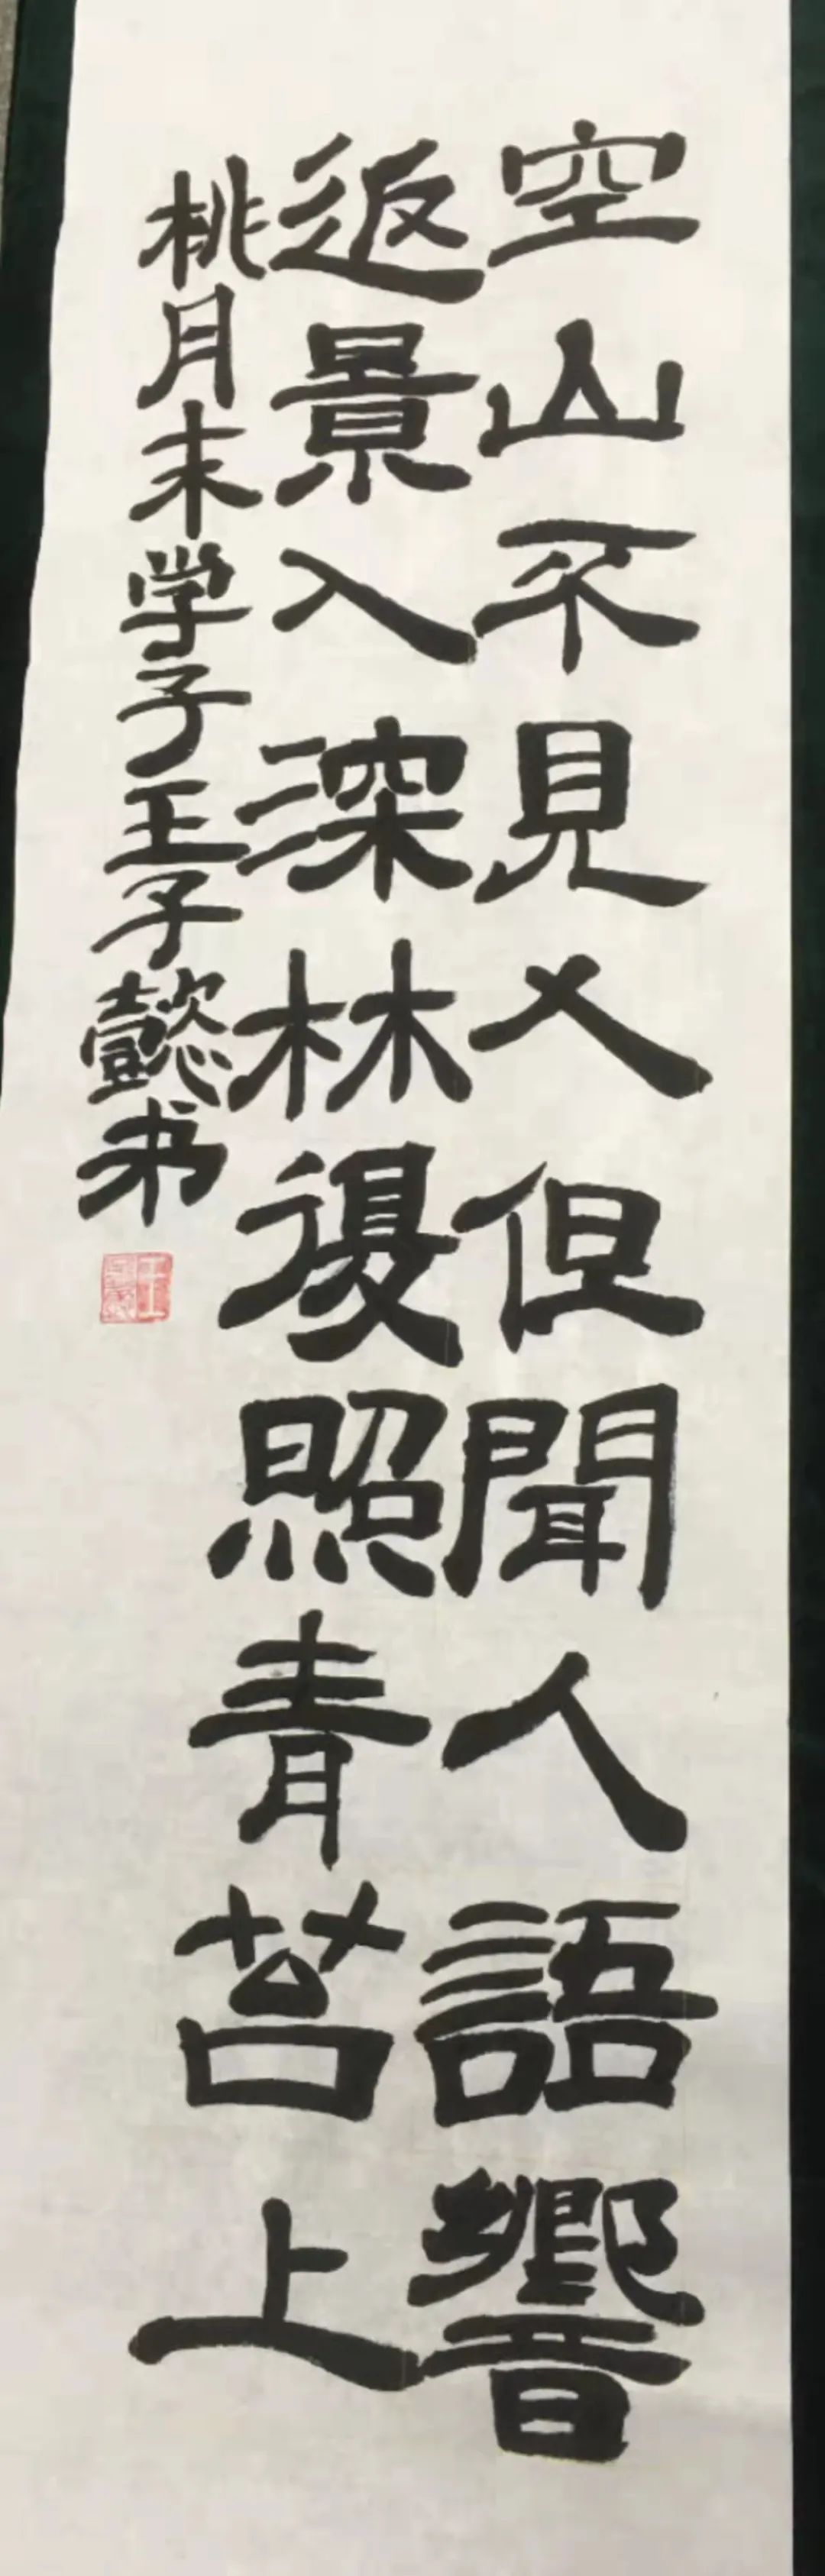 空山不見人但聞人語響
返景入深林復照青苔上
桃月末学子王子懿书